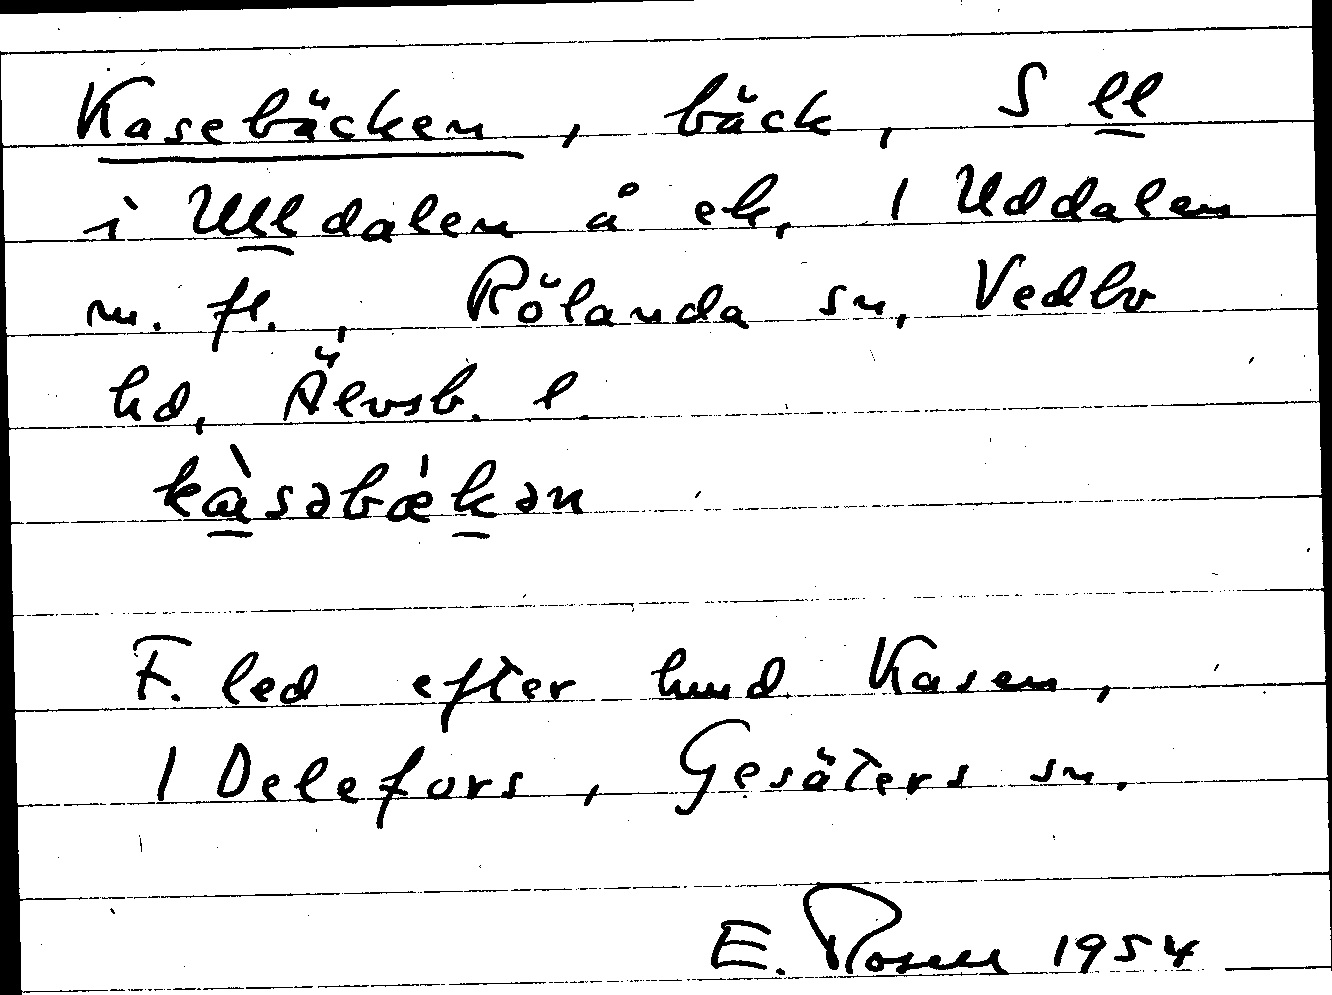 Kasebäcken, bäck, S ll
i Ulldalen å ek. 1 Uddalen
m. fl., Rölanda sn, Vedbo
hd, Älvsb. l.
kàsəbækən
F. led efter hmd Kasen,
1 Delefors, Gesäters sn.
E. Rosell 1954